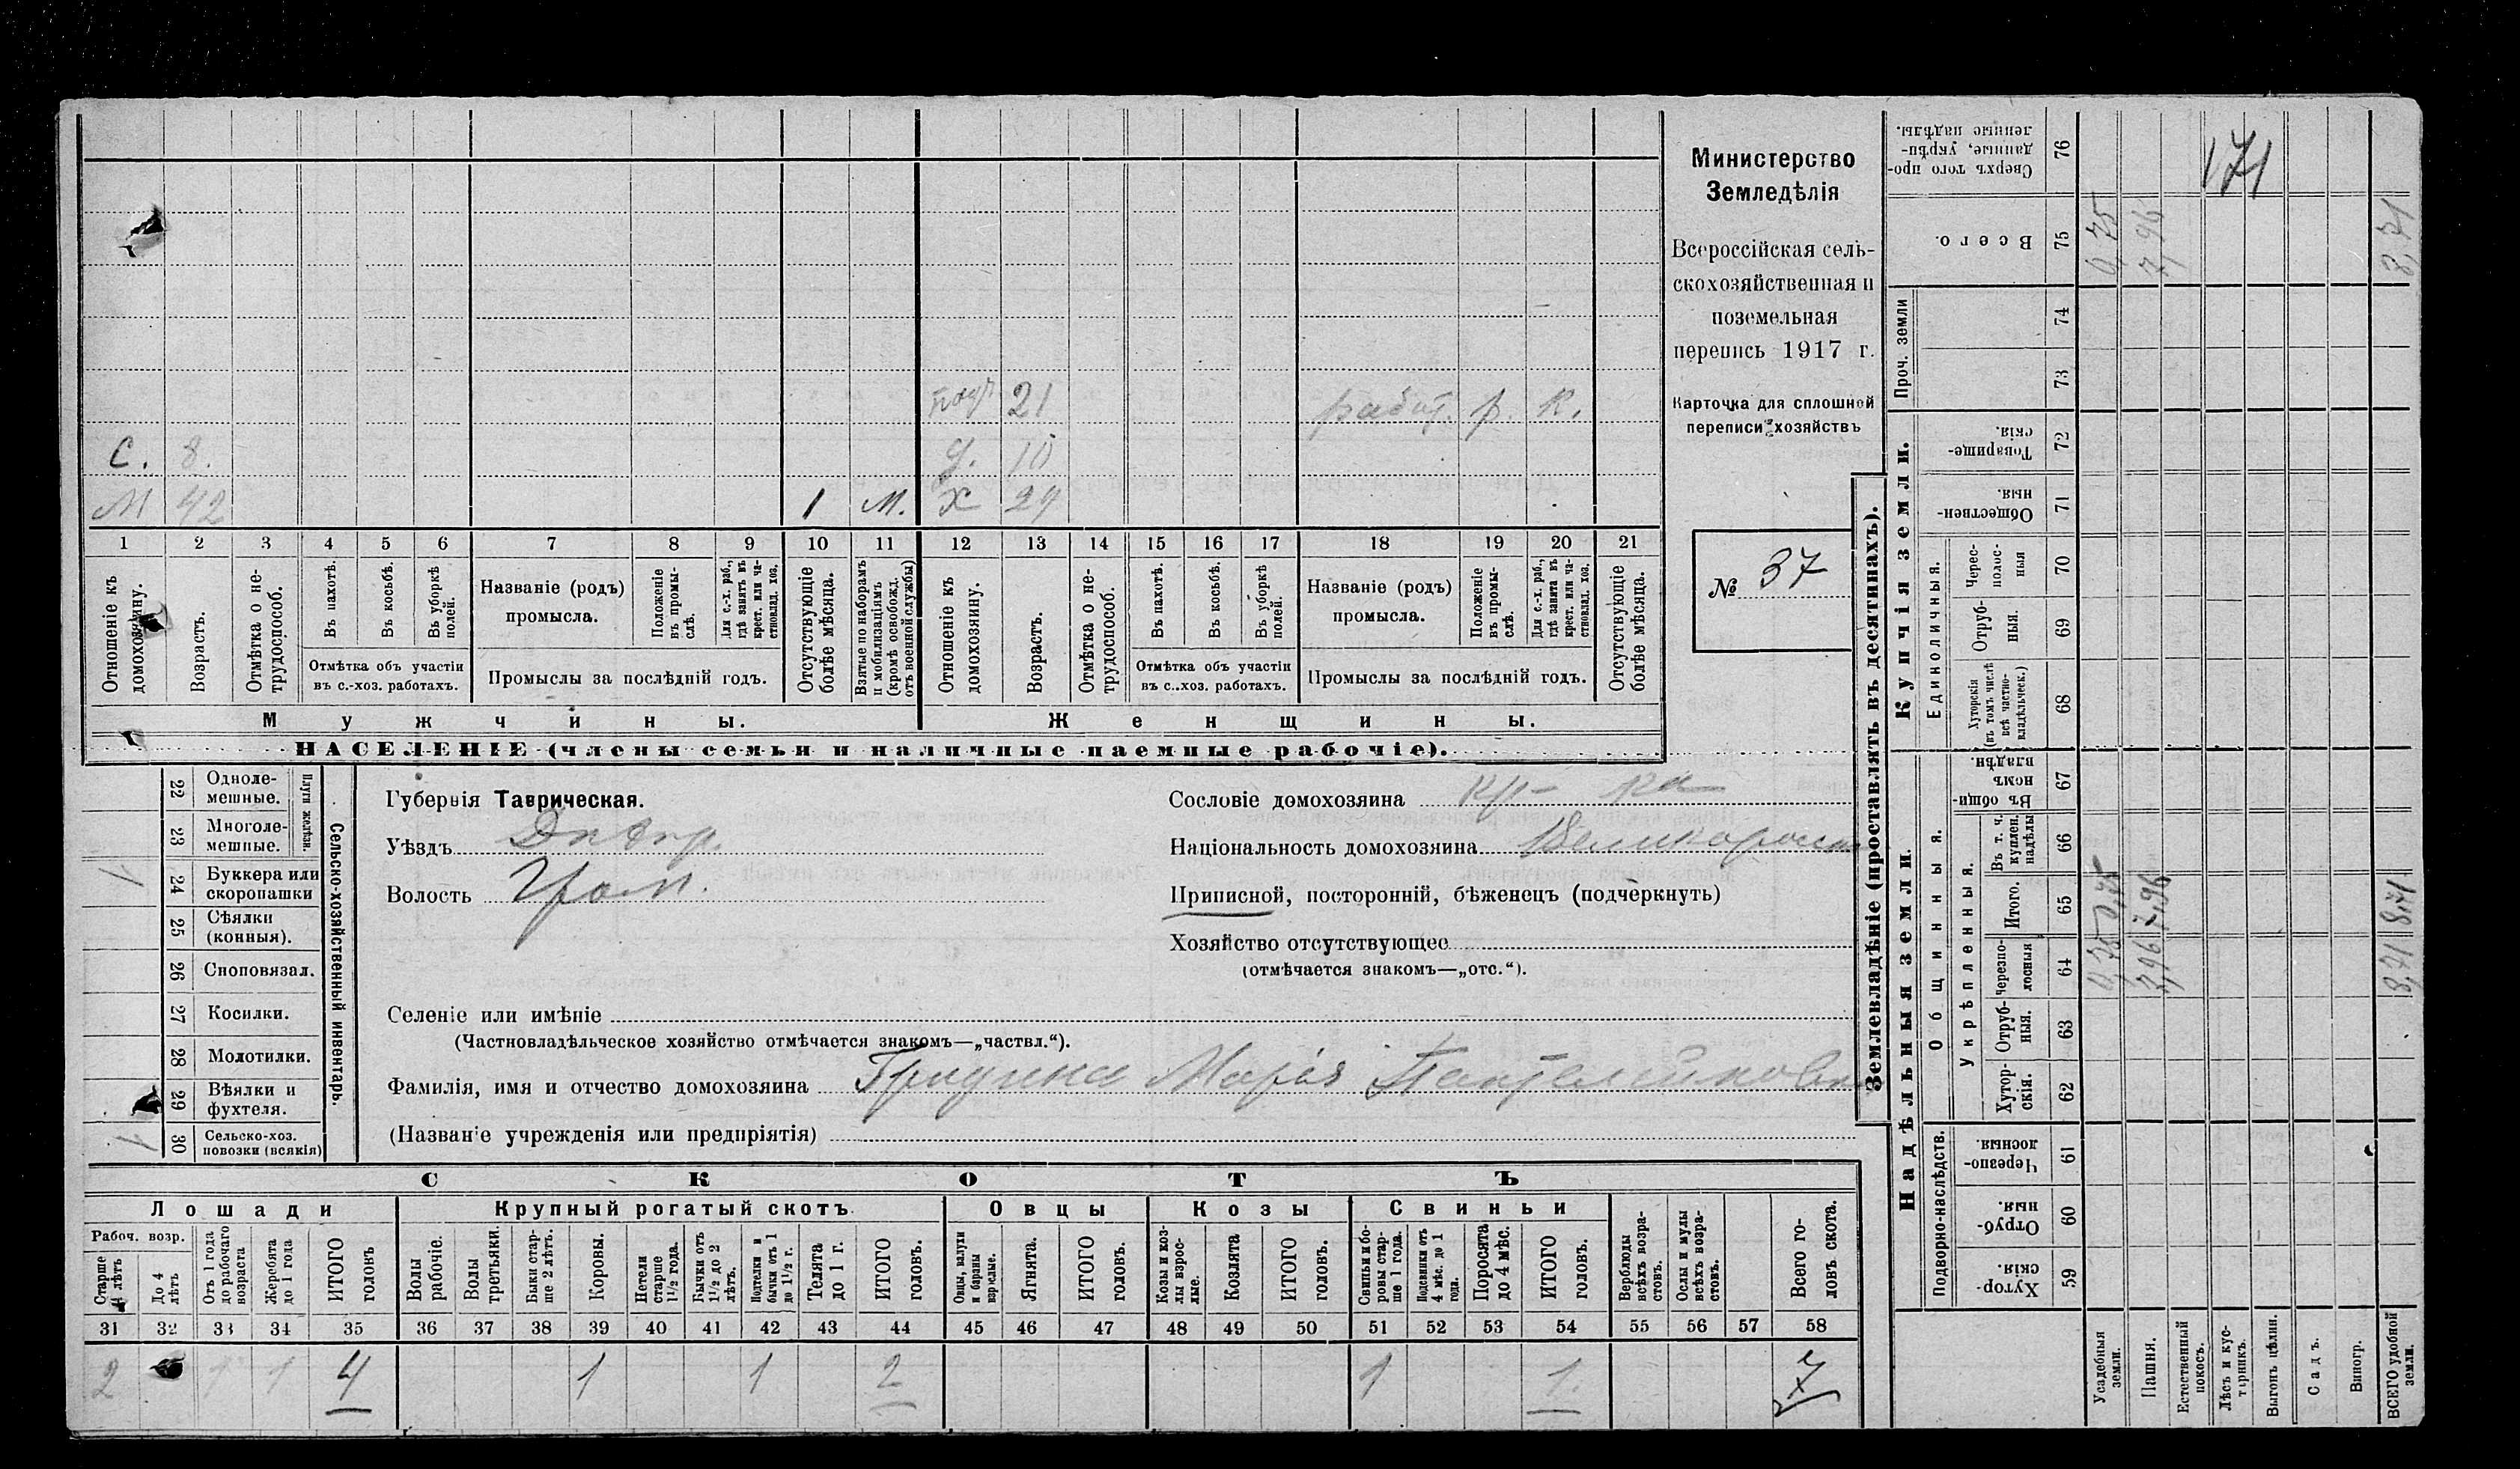 171
Министерство
Земледѣлія
Всероссійская сель-
скохозяйственная и
поземельная
перепись 1917 г.
Карточка для сплошной
переписи хозяйствъ
№ 37
21 работ. р. к.
С. 8. д. 10
М 42 1 М. Х 29
1 2 3 4 5 6 7 8 9 10 11 12 13 14 15 16 17 18 19 20 21
Отношеніе къ домохозяину.
Возрастъ.
Отмѣтка о не-трудоспособ.
Въ пахотѣ.
Въ косьбѣ.
Въ уборкѣ полей.
Отмѣтка объ участіи
въ с.-хоз. работахъ.
Названіе (родъ)
промысла.
Положеніе въ промы-слѣ.
Для с.-х. раб., гдѣ занятъ въ крест. или ча-стновлад. хоз.
Промыслы за послѣдній годъ.
Отсутствующіе болѣе мѣсяца.
Взятые по наборамъ и мобилизаціямъ (кромѣ освобожд. отъ военной службы)
Отношеніе къ домохозяину.
Возрастъ.
Отмѣтка о не-трудоспособ.
Въ пахотѣ.
Въ косьбѣ.
Въ уборкѣ полей.
Отмѣтка объ участіи
въ с..хоз. работахъ.
Названіе (родъ)
промысла.
Положеніе въ промы-слѣ.
Для с.-х. раб., гдѣ занята въ крест. или ча-стновлад. хоз.
Промыслы за послѣдній годъ.
Отсутствующіе болѣе мѣсяца.
Мужчины. Женщины.
НАСЕЛЕНІЕ (члены семьи и наличные наемные рабочіе).
Сельско-хозяйственный инвентарь.
Плуги желѣзн.
22 Одноле-мешные.
23 Многоле-мешные.
24 Буккера или скоропашки 1
25 Сѣялки (конныя).
26 Сноповязал.
27 Косилки.
28 Молотилки.
29 Вѣялки и фухтеля.
30 Сельско-хоз. повозки (всякія) 1
Губернія Таврическая.
Уѣздъ Днѣпр.
Волость
Сословіе домохозяина кр-ка
Національность домохозяина
Приписной, посторонній, бѣженецъ (подчеркнуть)
Хозяйство отсутствующее
(отмѣчается знакомъ—„отс.“).
Селеніе или имѣніе
(Частновладѣльческое хозяйство отмѣчается знакомъ—„частвл.“).
Фамилія, имя и отчество домохозяина Марія
(Названіе учрежденія или предпріятія)
СКОТЪ
Лошади Крупный рогатый скотъ Овцы Козы Свиньи
Рабоч. возр.
Старше 4 лѣтъ
До 4 лѣтъ
Отъ 1 года до рабочаго возраста
Жеребята до 1 года
ИТОГО головъ
Волы рабочіе.
Волы третьяки.
Быки стар-ше 2 лѣтъ.
Коровы.
Нетели старше 1½ года.
Бычки отъ 1½ до 2 лѣтъ.
Подтелки и бычки отъ 1 до 1½ г.
Телята до 1 г.
ИТОГО головъ.
Овцы, валухи и бараны взрослые.
Ягнята.
ИТОГО головъ.
Козы и коз-лы взрос-лые.
Козлята
ИТОГО головъ.
Свиньи и бо-ровы стар-ше 1 года.
Подсвинки отъ 4 мѣс. до 1 года.
Поросята до 4 мѣс.
ИТОГО головъ.
Верблюды всѣхъ возра-стовъ.
Ослы и мулы всѣхъ возра-стовъ.
Всего го-ловъ скота.
31 32 33 34 35 36 37 38 39 40 41 42 43 44 45 46 47 48 49 50 51 52 53 54 55 56 57 58
2 1 1 4 1 1 2 1 1. 7
Землевладѣніе (проставлять въ десятинахъ).
Надѣльныя земли.
Купчія земли.
Проч. земли
Подворно-наслѣдств.
Общинныя.
Укрѣпленныя.
Единоличныя.
59 Хутор-скія.
60 Отруб-ныя.
61 Черезпо-лосныя.
62 Хутор-скія.
63 Отруб-ныя.
64 Черезпо-лосныя
65 Итого.
66 Въ т. ч. куплен. надѣлы
67 Въ общин-номъ владѣн.
68 Хуторскія (въ томъ числѣ всѣ частно-владѣльческ.)
69 Отруб-ныя.
70 Черес-полос-ныя
71 Обществен-ныя.
72 Товарище-скія.
73
74
75 Всего.
76 Сверхъ того про-данные, укрѣп-ленные надѣлы.
Усадебныя земли. 0,75 0,75 0,75
Пашня. 7,96 7,96 7,96
Естественный покосъ.
Лѣсъ и кус-тарникъ.
Выгонъ цѣлин.
Садъ.
Виногр.
ВСЕГО удобной земли. 8,71 8,71 8,71